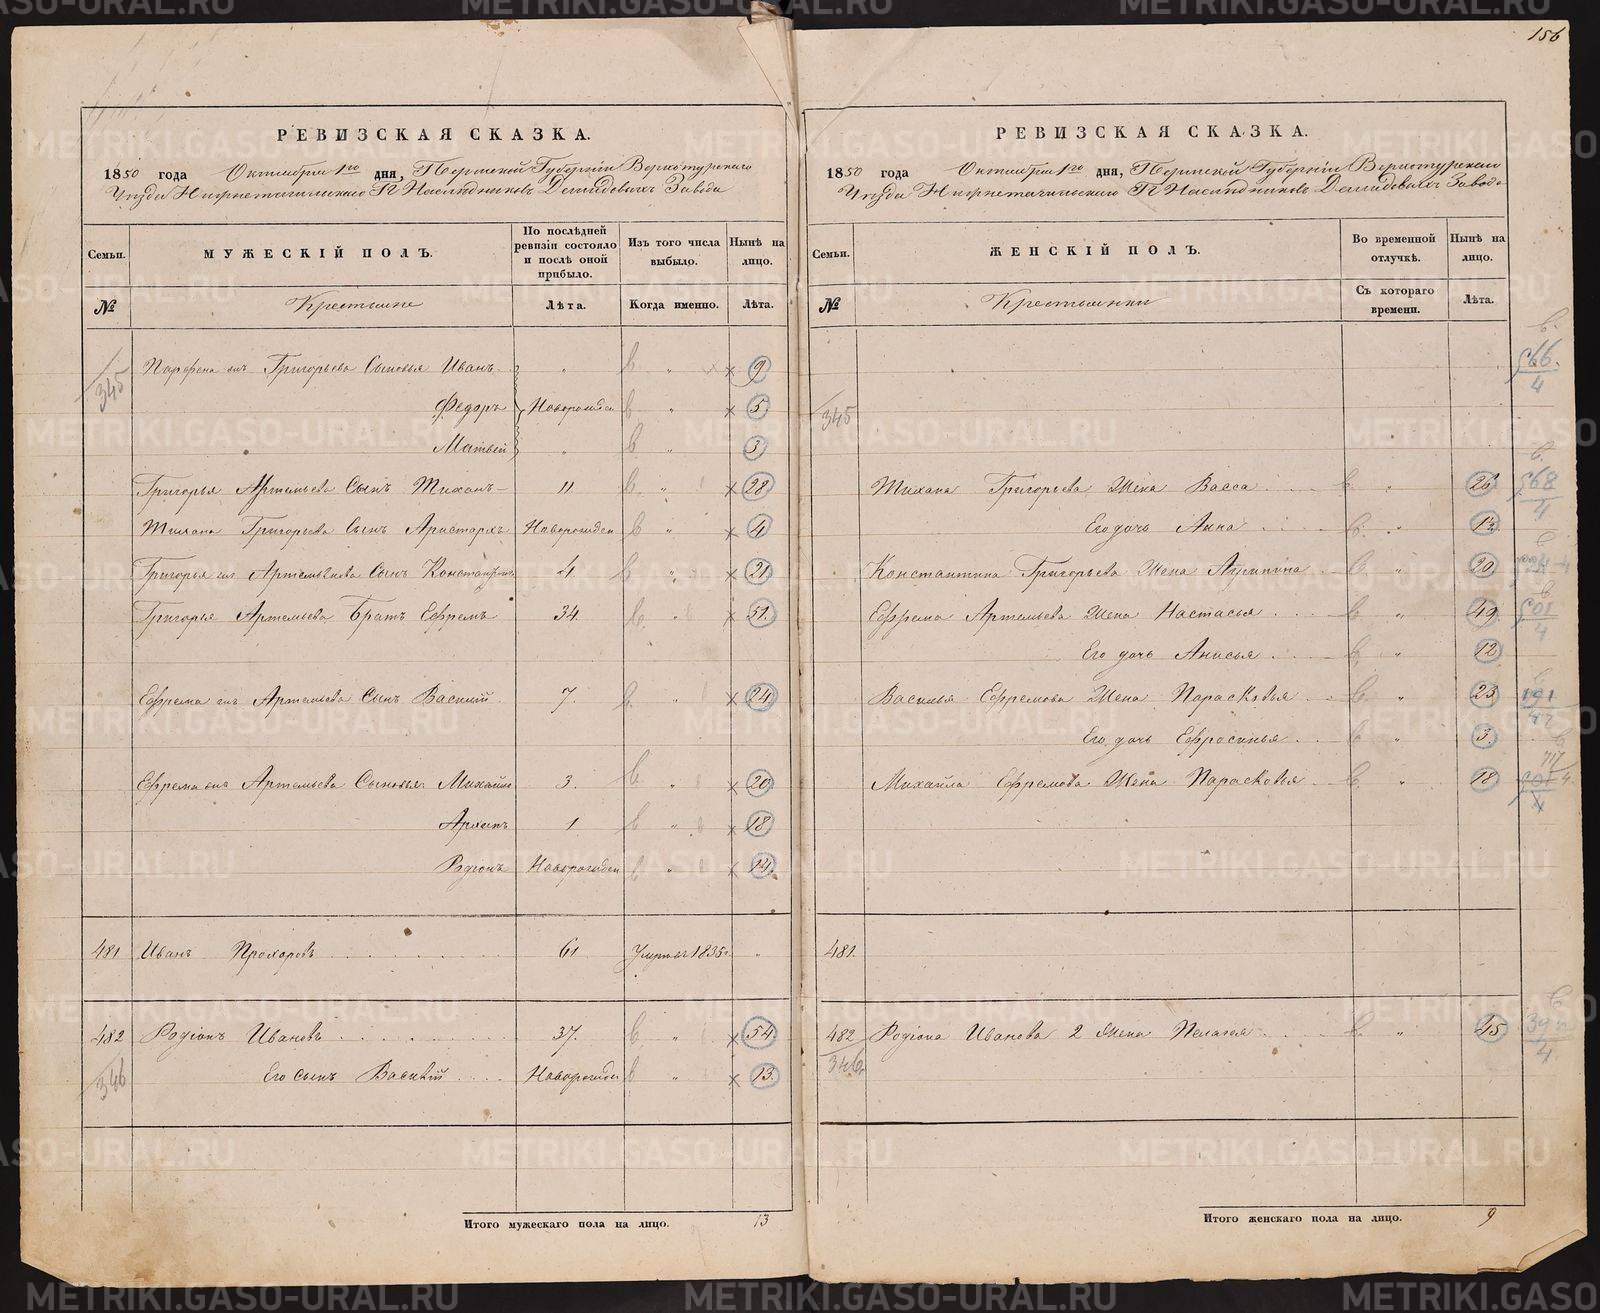 156
РЕВИЗСКАЯ СКАЗКА.
1850 года Октября 1го дня, Пермской Губернiи Верхотурскаго
Уезда Нижнетагильскаго Гг Наследниковъ Демидовыхъ Завода
Семьи.
МУЖЕСКIЙ ПОЛЪ.
По послѣдней ревизiи состояло и послѣ оной прибыло.
Изъ того числа выбыло.
Нынѣ на лицо.
№
Крестьяне
Лѣта.
Когда именно.
Лѣта.
345
Парфена Григорьева Сыновья Иванъ " в " × 9
Федоръ Новорожден в " × 5
Матвей " в " 3
Григорья Артемьева Сынъ Тиханъ 11 в " × 28
Тихана Григорьева Сынъ Аристархъ Новорожден в " × 4
Григорья Артемьева Сынъ Константинъ 4 в " × 21
Григорья Артемьева Братъ Ефремъ 34. в " × 51.
Ефрема Артемьева Сынъ Василiй 7. в " × 24
Ефрема Артемьева Сыновья Михайло 3. в " × 20
Архипъ 1 в " × 18
Родiонъ Новорожден в " × 14
481 Иванъ Прохоровъ 61 Умре въ 1835г. "
482 Родiонъ Ивановъ 37. в " × 54
346 Его сынъ Василiй Новорожден в " × 13.
Итого мужескаго пола на лицо. 13
РЕВИЗСКАЯ СКАЗКА.
1850 года Октября 1го дня, Пермской Губернiи Верхотурскаго
Уезда Нижнетагильскаго Гг Наследниковъ Демидовыхъ Завода
Семьи.
ЖЕНСКIЙ ПОЛЪ.
Во временной отлучкѣ.
Нынѣ на лицо.
№
Крестьянки
Съ котораго времени.
Лѣта.
345
Тихана Григорьева Жена Васса в " 26
Его дочь Анна в "
Константина Григорьева Жена в " 20
Ефрема Артемьева Жена Настасья в " 49
Его дочь Анисья в " 12
Василья Ефремова Жена Парасковья в " 23
Его дочь Ефросинья в " 3
Михайла Ефремова Жена Парасковья в " 18
481.
482 Родiона Иванова 2 жена Пелагея в " 45
346
Итого женскаго пола на лицо. 9
METRIKI.GASO-URAL.RU